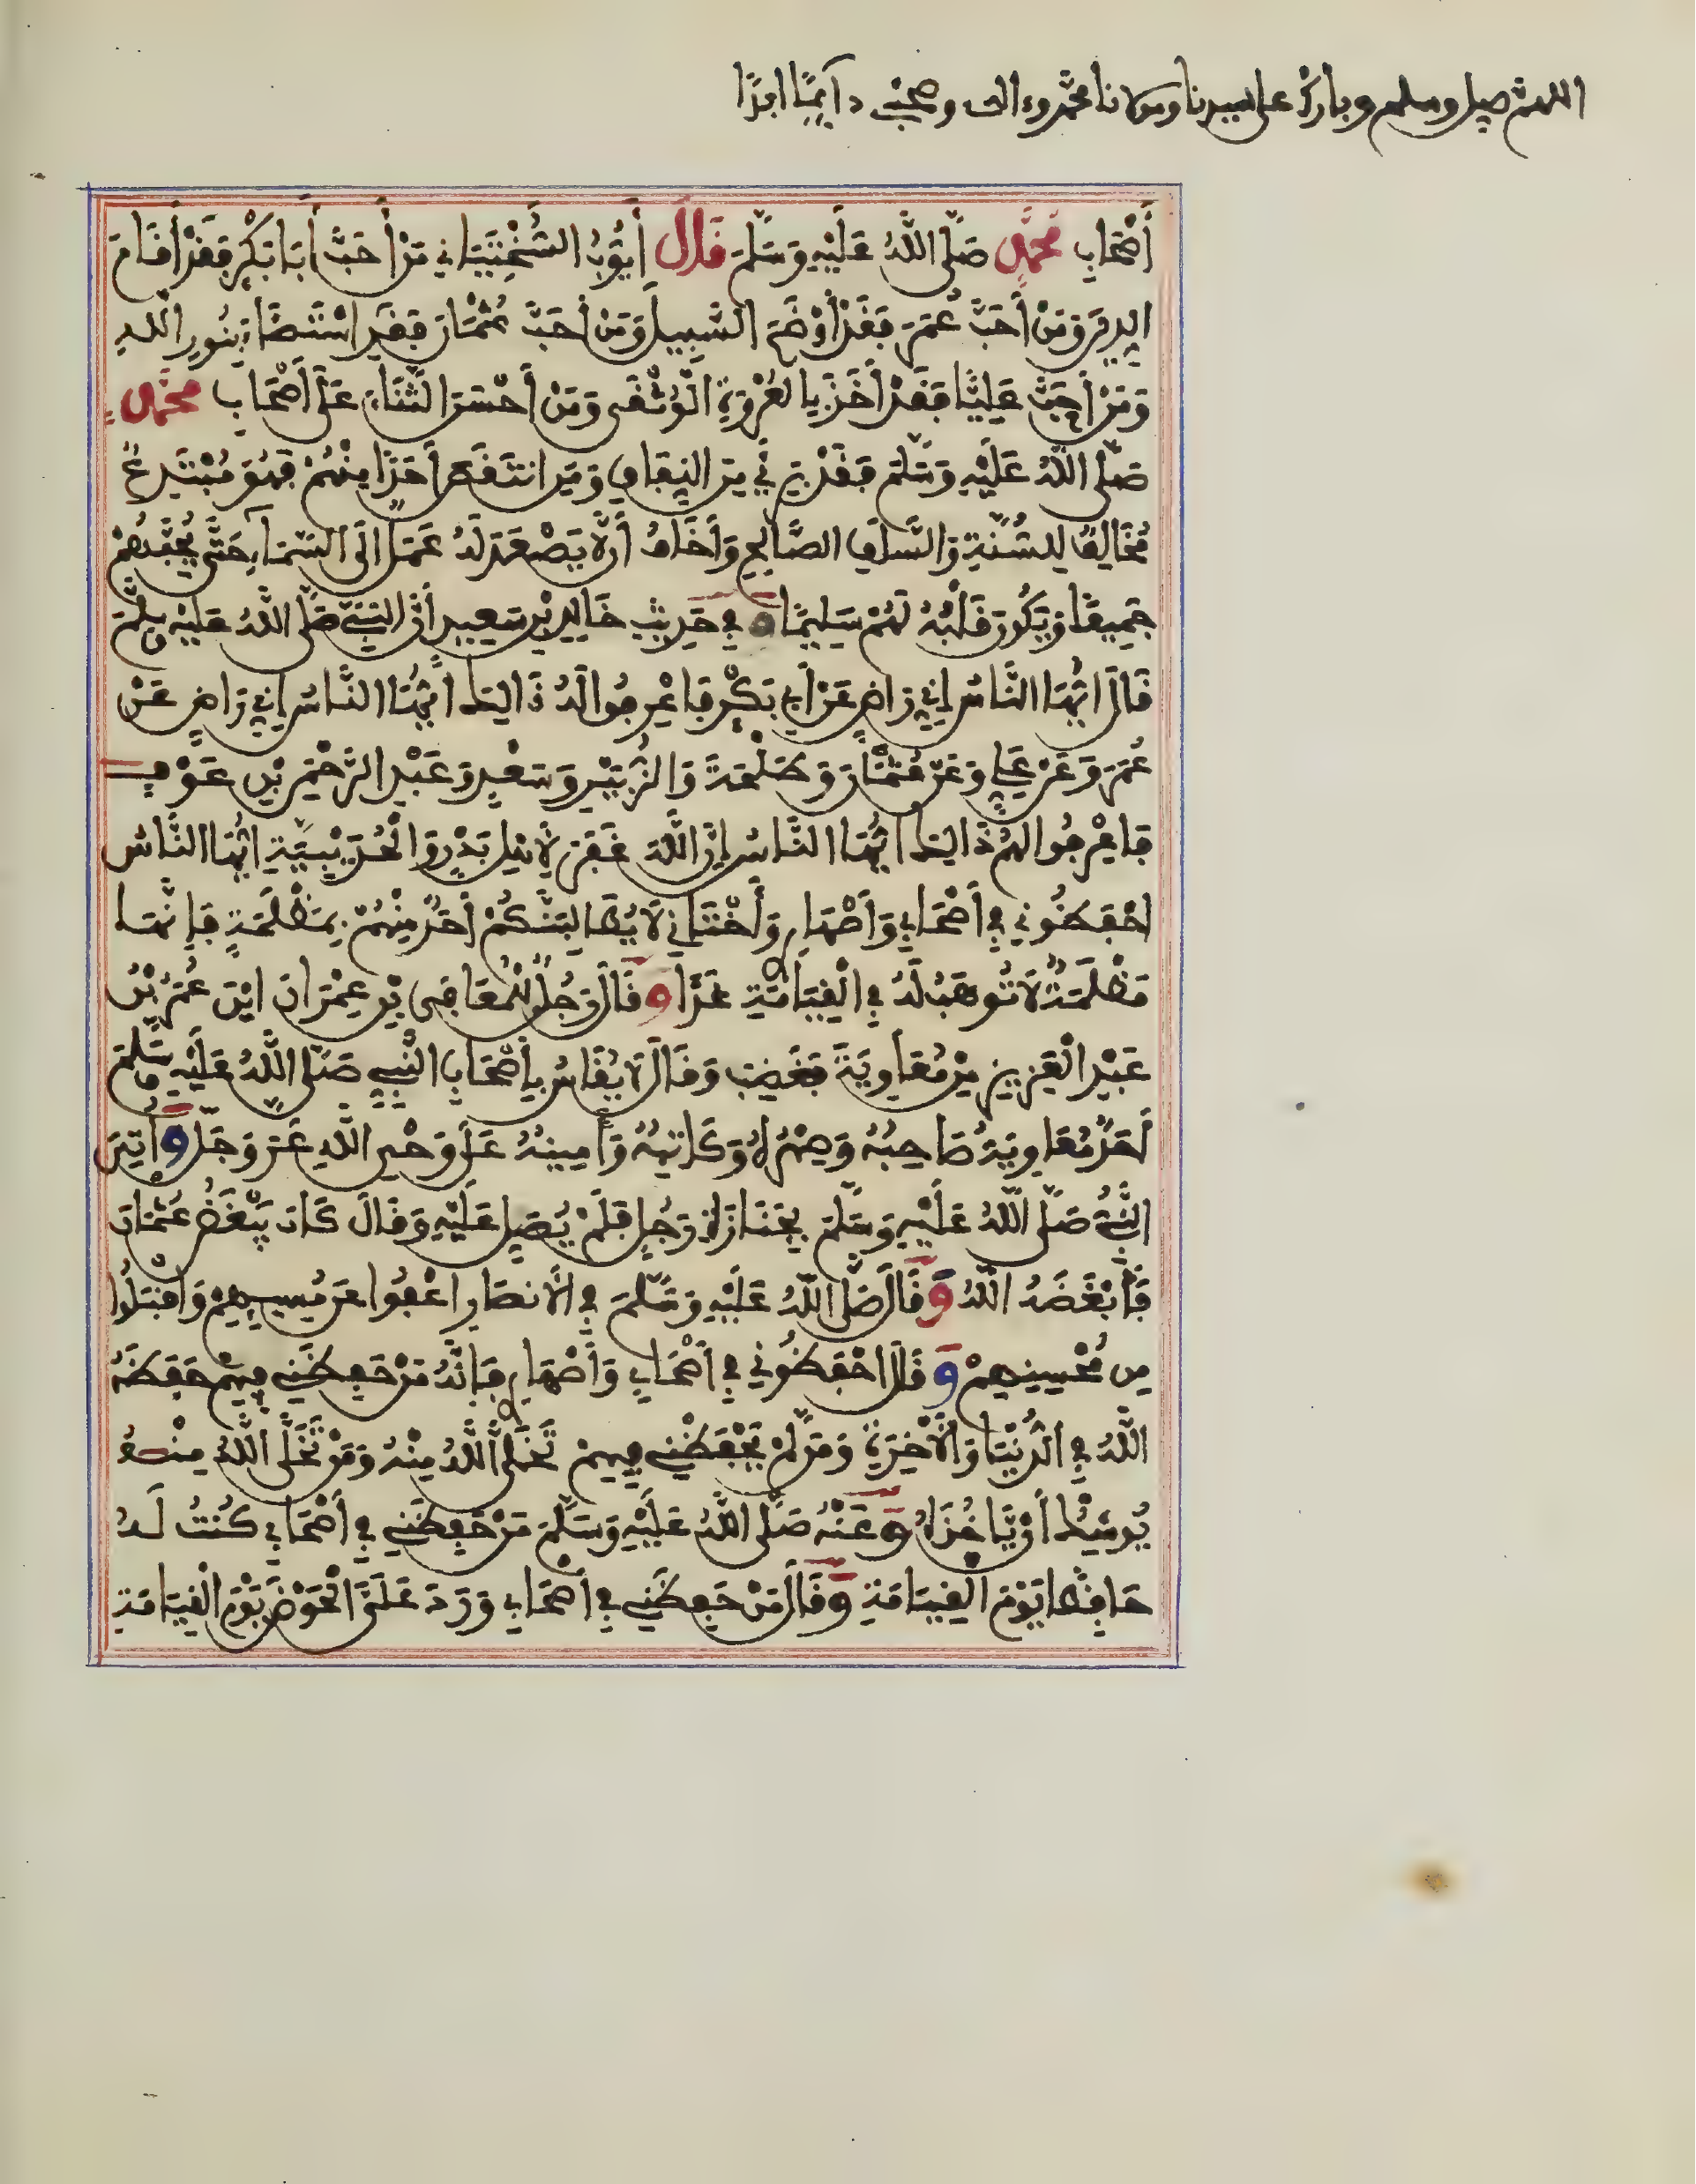 اللهم صل وسلم وبارك على سيدنا ومولانا محمد وءاله وصحبه دآئما ابدا
أَصْحَابِ مُحَمَّدٍ صَلَّى اللَّهُ عَلَيْهِ وَسَلَّمَ قَالَ أَيُّوبُ السَّخْتِيَانِي مَنْ أَحَبَّ أَبَا بَكْرٍ فَقَدْ أَقَامَ
الدِّينَ وَمَنْ أَحَبَّ عُمَرَ فَقَدْ أَوْضَحَ السَّبِيلَ وَمَنْ أَحَبَّ عُثْمَانَ فَقَدِ اسْتَضَاءَ بِنُورِ اللَّهِ
وَمَنْ أَحَبَّ عَلِيًّا فَقَدْ أَخَذَ بِالْعُرْوَةِ الْوُثْقَى وَمَنْ أَحْسَنَ الثَّنَاءَ عَلَى أَصْحَابِ مُحَمَّدٍ
صَلَّى اللَّهُ عَلَيْهِ وَسَلَّمَ فَقَدْ بَرِئَ مِنَ النِّفَاقِ وَمَنِ انْتَقَصَ أَحَدًا مِنْهُمْ فَهُوَ مُبْتَدِعٌ
مُخَالِفٌ لِلسُّنَّةِ وَالسَّلَفِ الصَّالِحِ وَأَخَافُ أَنْ لَا يَصْعَدَ لَهُ عَمَلٌ إِلَى السَّمَاءِ حَتَّى يُحِبَّهُمْ
جَمِيعًا وَيَكُونَ قَلْبُهُ لَهُمْ سَلِيمًا وَفِي حَدِيثِ خَالِدِ بْنِ سَعِيدٍ أَنَّ النَّبِيَّ صَلَّى اللَّهُ عَلَيْهِ وَسَلَّمَ
قَالَ أَيُّهَا النَّاسُ إِنِّي رَاضٍ عَنْ أَبِي بَكْرٍ فَاعْرِفُوا لَهُ ذَالِكَ أَيُّهَا النَّاسُ إِنِّي رَاضٍ عَنْ
عُمَرَ وَعَنْ عَلِيٍّ وَعَنْ عُثْمَانَ وَطَلْحَةَ وَالزُّبَيْرِ وَسَعْدٍ وَعَبْدِ الرَّحْمَنِ بْنِ عَوْفٍ
فَاعْرِفُوا لَهُمْ ذَالِكَ أَيُّهَا النَّاسُ إِنَّ اللَّهَ غَفَرَ لِأَهْلِ بَدْرٍ وَالْحُدَيْبِيَّةِ أَيُّهَا النَّاسُ
احْفَظُونِي فِي أَصْحَابِي وَأَصْهَارِي وَأَخْتَانِي لَا يُطَالِبَنَّكُمْ أَحَدٌ مِنْهُمْ بِمَظْلَمَةٍ فَإِنَّهَا
مَظْلَمَةٌ لَا تُوهَبُ لَهُ فِي الْقِيَامَةِ غَدًا وَقَالَ رَجُلٌ لِلْمُعَافَى بْنِ عِمْرَانَ أَيْنَ عُمَرُ بْنُ
عَبْدِ الْعَزِيزِ مِنْ مُعَاوِيَةَ فَغَضِبَ وَقَالَ لَا يُقَاسُ بِأَصْحَابِ النَّبِيِّ صَلَّى اللَّهُ عَلَيْهِ وَسَلَّمَ
أَحَدٌ مُعَاوِيَةُ صَاحِبُهُ وَصِهْرُهُ وَكَاتِبُهُ وَأَمِينُهُ عَلَى وَحْيِ اللَّهِ عَزَّ وَجَلَّ وَأُتِيَ
النَّبِيُّ صَلَّى اللَّهُ عَلَيْهِ وَسَلَّمَ بِجَنَازَةِ رَجُلٍ فَلَمْ يُصَلِّ عَلَيْهِ وَقَالَ كَانَ يَبْغَضُ عُثْمَانَ
فَأَبْغَضَهُ اللَّهُ وَقَالَ صَلَّى اللَّهُ عَلَيْهِ وَسَلَّمَ فِي الْأَنْصَارِ اعْفُوا عَنْ مُسِيئِهِمْ وَاقْبَلُوا
مِنْ مُحْسِنِهِمْ وَقَالَ احْفَظُونِي فِي أَصْحَابِي وَأَصْهَارِي فَإِنَّهُ مَنْ حَفِظَنِي فِيهِمْ حَفِظَهُ
اللَّهُ فِي الدُّنْيَا وَالْأَخِرَةِ وَمَنْ لَمْ يَحْفَظْنِي فِيهِمْ تَخَلَّى اللَّهُ مِنْهُ وَمَنْ تَخَلَّى اللَّهُ مِنْهُ
يُوشِكُ أَنْ يَأْخُذَهُ وَعَنْهُ صَلَّى اللَّهُ عَلَيْهِ وَسَلَّمَ مَنْ حَفِظَنِي فِي أَصْحَابِي كُنْتُ لَهُ
حَافِظًا يَوْمَ الْقِيَامَةِ وَقَالَ مَنْ حَفِظَنِي فِي أَصْحَابِي وَرَدَ عَلَيَّ الْحَوْضَ يَوْمَ الْقِيَامَةِ